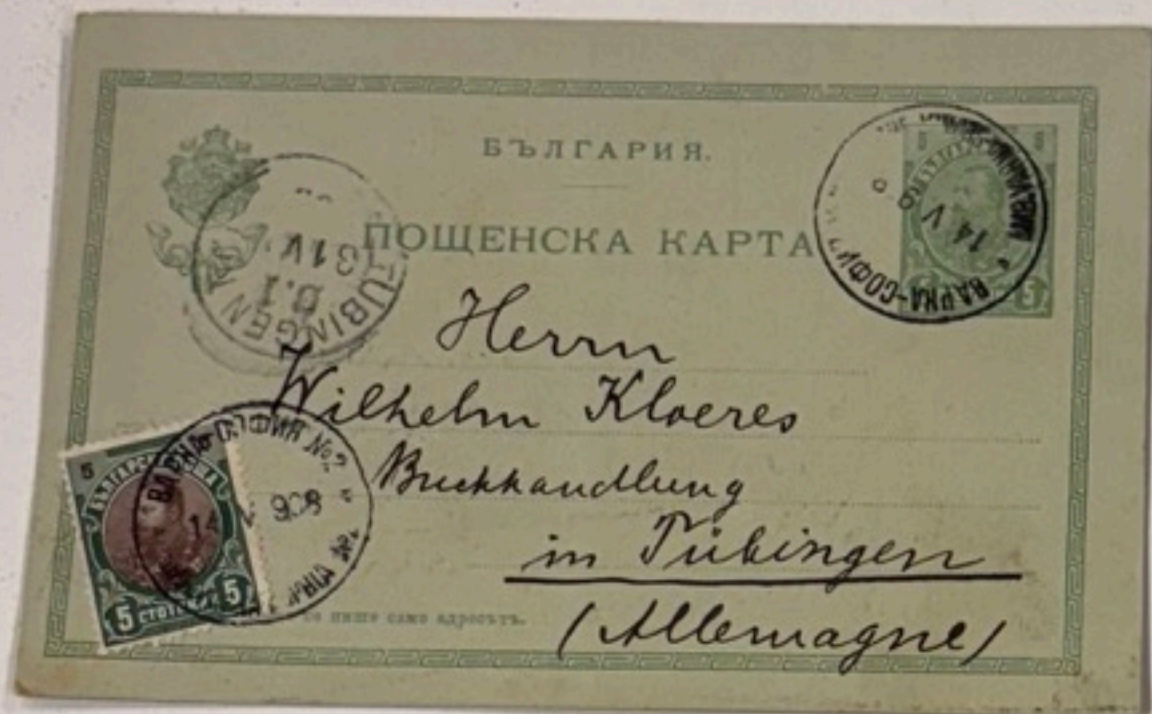 БЪЛГАРИЯ.
ПОЩЕНСКА КАРТА
5
14 V
ВАРНА-СОФИЯ
TÜBINGEN
31 V
Herrn
Wilhelm Kloeres
Buchhandlung
in Tübingen
(Allemagne)
ВАРНА-СОФИЯ №2
14 V 908
5
5 СТОТИНКИ 5
се пише само адресътъ.